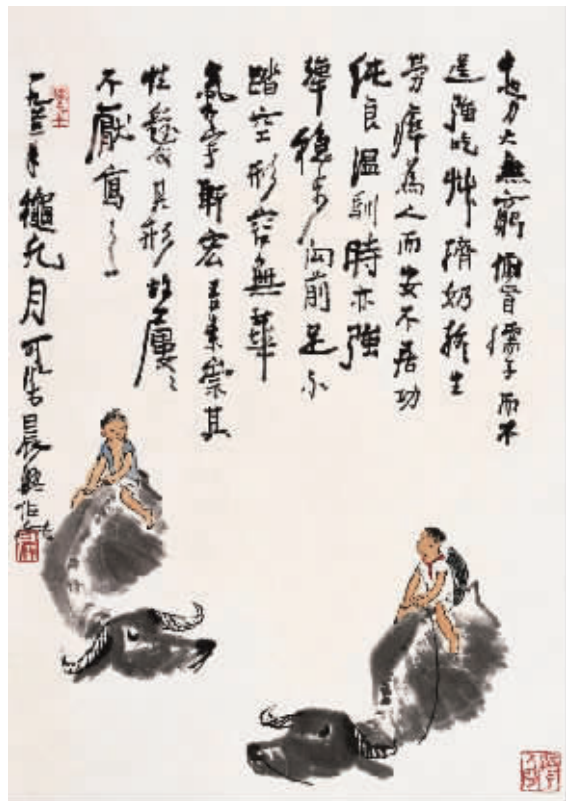 牛也力大無窮俯首孺子而不
逞強吃艸擠奶終生
勞瘁為人而安不居功
純良溫馴時亦強
犟穩步向前足不
踏空形容無華
氣宇軒宏吾素崇其
性愛其形故屢〻
不厭寫之
一九六二年龝九月可染晨興作